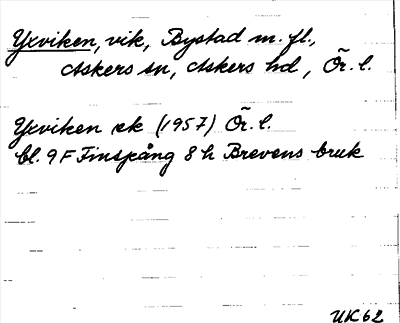 Yxviken, vik, Bystad m. fl.,
Askers sn, Askers hd, Ör. l.
Yxviken ek (1957) Ör. l.
bl. 9 F Finspång 8 h Brevens bruk
UK62